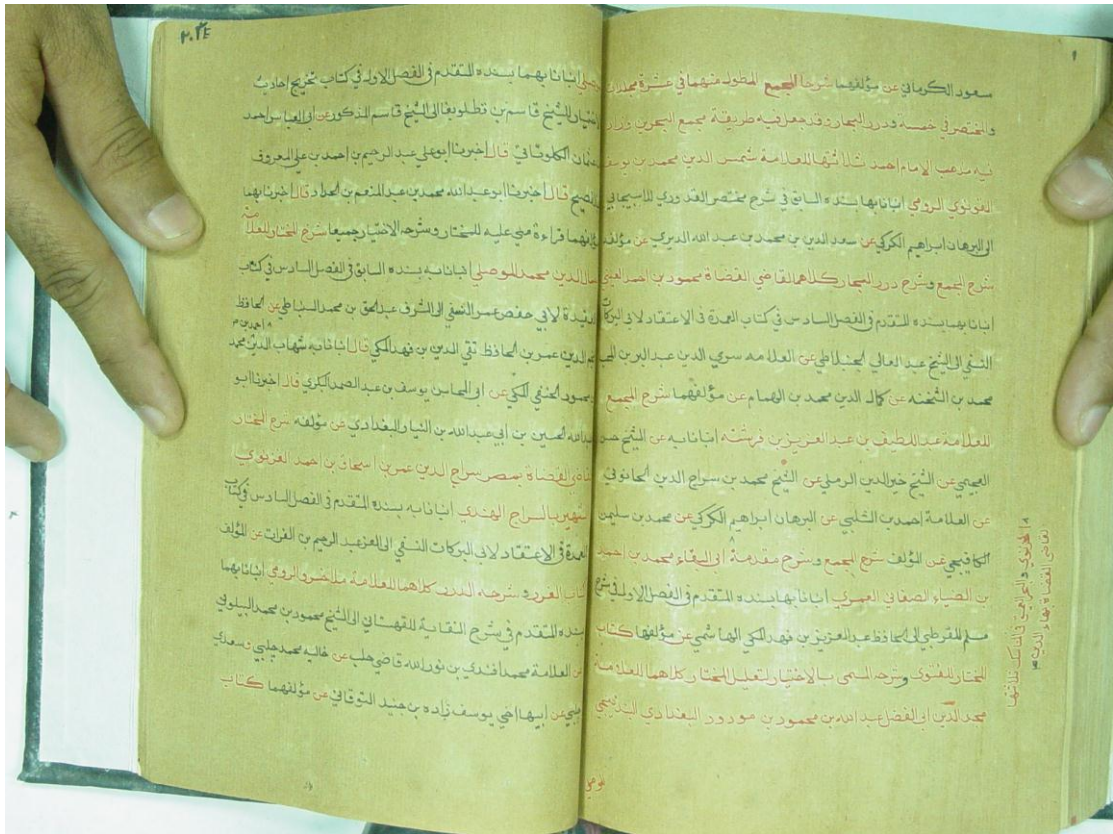 سعود الكرماني عن مؤلفهما شرحا المجمع المطول منهما في عشرة مجلدات
والمختصر في خمسة ودرر البحار وقد جعل فيه طريقة مجمع البحرين وزاد
فيه مذهب الإمام احمد ثلاثتها للعلامة شمس الدين محمد بن يوسف
القونوي الرومي انبانا بها بسنده السابق في شرح مختصر القدوري للاسبيجابي
الى البرهان ابراهيم الكركي عن سعد الدين بن محمد بن عبد الله الديري عن مؤلفه
شرح المجمع وشرح درر البحار كلاهما للقاضي القضاة محمود بن احمد العيني
انبانا بهما بسنده المتقدم في الفصل السادس في كتاب العمدة في الاعتقاد لابي البركات
النسفي الى الشيخ عبد العالي الجنبلاطي عن العلامه سري الدين عبد البر بن المحب
محمد بن الشحنه عن كمال الدين محمد بن الهمام عن مؤلفهما شرح المجمع
للعلامة عبد اللطيف بن عبد العزيز بن فرشته انبانا به عن الشيخ حسن
العجيمي عن الشيخ خير الدين الرملي عن الشيخ محمد بن سراج الدين الحانوتي
عن العلامة احمد بن الشلبي عن البرهان ابراهيم الكركي عن محمد بن سليمن
الكافيجي عن المؤلف شرح المجمع وشرح مقدمة ابي البقاء محمد بن احمد
بن الضياء الصغاني العمري انبانا بها بسنده المتقدم في الفصل الاول في شرح
مسلم للقرطبي الى الحافظ عبد العزيز بن فهد المكي الهاشمي عن مؤلفها كتاب
المختار للفتوى وشرحه المسمى بالاختيار لتعليل المختار كلاهما للعلامة
مجد الدين ابي الفضل عبد الله بن محمود بن مودود البغدادي البلدجي
الغزنوي والبحر العميق في المناسك ثلاثتها
لقاضي القضاة بهاء الدين
موصلي
الموصلي انبانا بهما بسنده المتقدم في الفصل الاول في كتاب تخريج احاديث
اختيار للشيخ قاسم بن قطلوبغا الى الشيخ قاسم المذكور عن ابي العباس احمد
عثمان الكلوتاتي قال اخبرنا ابو علي عبد الرحيم بن احمد بن علي المعروف
الفصيح قال اخبرنا ابو عبد الله محمد بن عبد المنعم بن الحداد قال اخبرنا بهما
مؤلفهما قراءة مني عليه للمختار وشرحه الاختيار جميعا شرح المختار للعلامة
جمال الدين محمد الموصلي انبانا به بسنده السابق في الفصل السادس في كتاب
العقيدة لابي حفص عمر النسفي الى الشرف عبد الحق بن محمد السنباطي عن الحافظ
نجم الدين عمر بن الحافظ تقي الدين بن فهد المكي قال انبانا به شهاب الدين محمد
احمد بن
محمود الحنفي المكي عن ابي المحاسن يوسف بن عبد الصمد البكري قال اخبرنا ابو
عبد الله الحسين بن ابي عبد الله بن النيار البغدادي عن مؤلفه شرح المختار
القضاة بمصر سراج الدين عمر بن اسحاق بن احمد الغزنوي
الشهير بالسراج الهندي انبانا به بسنده المتقدم في الفصل السادس في كتاب
العمدة في الاعتقاد لابي البركات النسفي الى العز عبد الرحيم بن الفرات عن المؤلف
كتاب الغرر وشرحه الدرر كلاهما للعلامة ملا خسرو الرومي انبانا بهما
بسنده المتقدم في شرح النقاية للقهستاني الى الشيخ محمود بن محمد البيلوني
عن العلامة محمد افندي بن نور الله قاضي حلب عن خاليه محمد جلبي وسعدي
جلبي عن ابيهما اخي يوسف زاده بن جنيد التوقاتي عن مؤلفهما كتاب